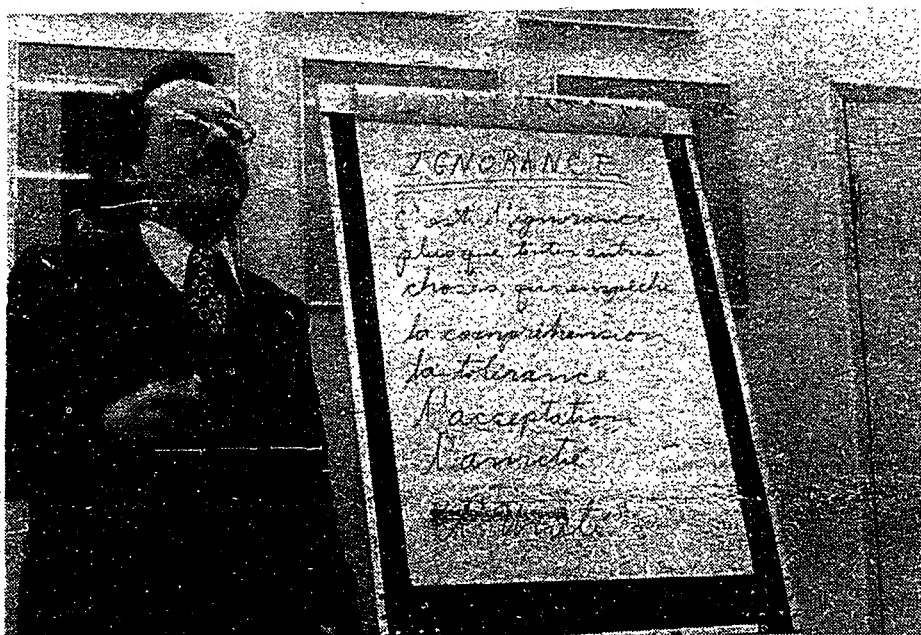 IGNORANCE
C'est l'ignorance
plus que toutes autres
choses, qui empêche
la compréhension
la tolérance
l'acceptation
l'amitié